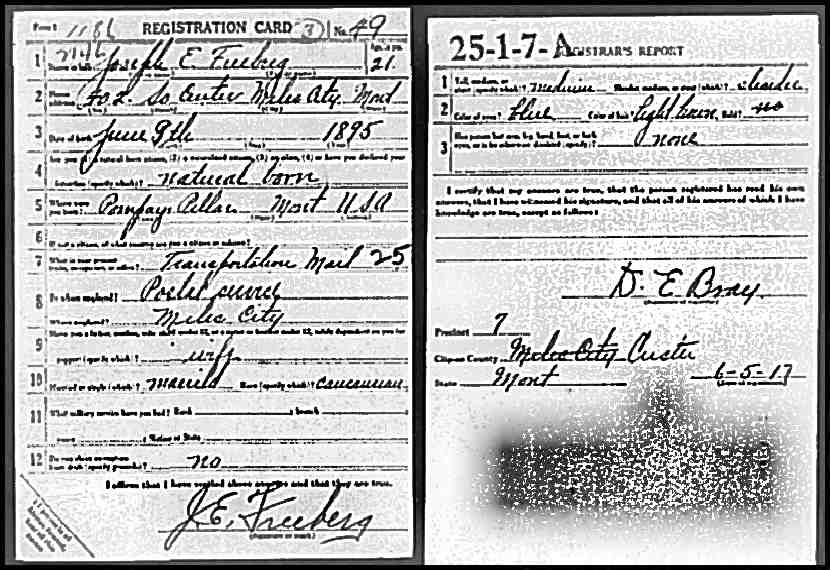 Form 1 1186 REGISTRATION CARD 3 No. 49
1 Joseph E. Freeberg Age, in yrs. 21
2 So. Center Miles City, Mont
3 Date of birth June 9th 1895
4 Are you (1) a natural born citizen, (2) a naturalized citizen, (3) an alien, (4) or have you declared your
intention (specify which)? natural born
5 Where were you born? Pompays Pillar Mont USA
6 If not a citizen, of what country are you a citizen or subject?
7 What is your present trade, occupation, or office? Transportation Mail 25
8 By whom employed? Postal service
Where employed? Miles City
9 Have you a father, mother, wife, child under 12, or a sister or brother under 12, solely dependent on you for
support (specify which)? wife
10 Married or single (which)? Married Race (specify which)? Caucasian
11 What military service have you had? Rank ; branch
years ; Nation or State
12 Do you claim exemption from draft (specify grounds)? no
I affirm that I have verified above answers and that they are true.
J. E. Freeberg
(Signature or mark)
25-1-7-A REGISTRAR'S REPORT
1 Tall, medium, or short (specify which)? Medium Slender, medium, or stout (which)? Slender
2 Color of eyes? blue Color of hair? light brown Bald? no
3 Has person lost arm, leg, hand, foot, or both eyes, or is he otherwise disabled (specify)? none
I certify that my answers are true, that the person registered has read his own
answers, that I have witnessed his signature, and that all of his answers of which I have
knowledge are true, except as follows:
D. E. Bray
(Signature of registrar)
Precinct 7
City or County Miles City Custer
State Mont 6-5-17
(Date of registration)